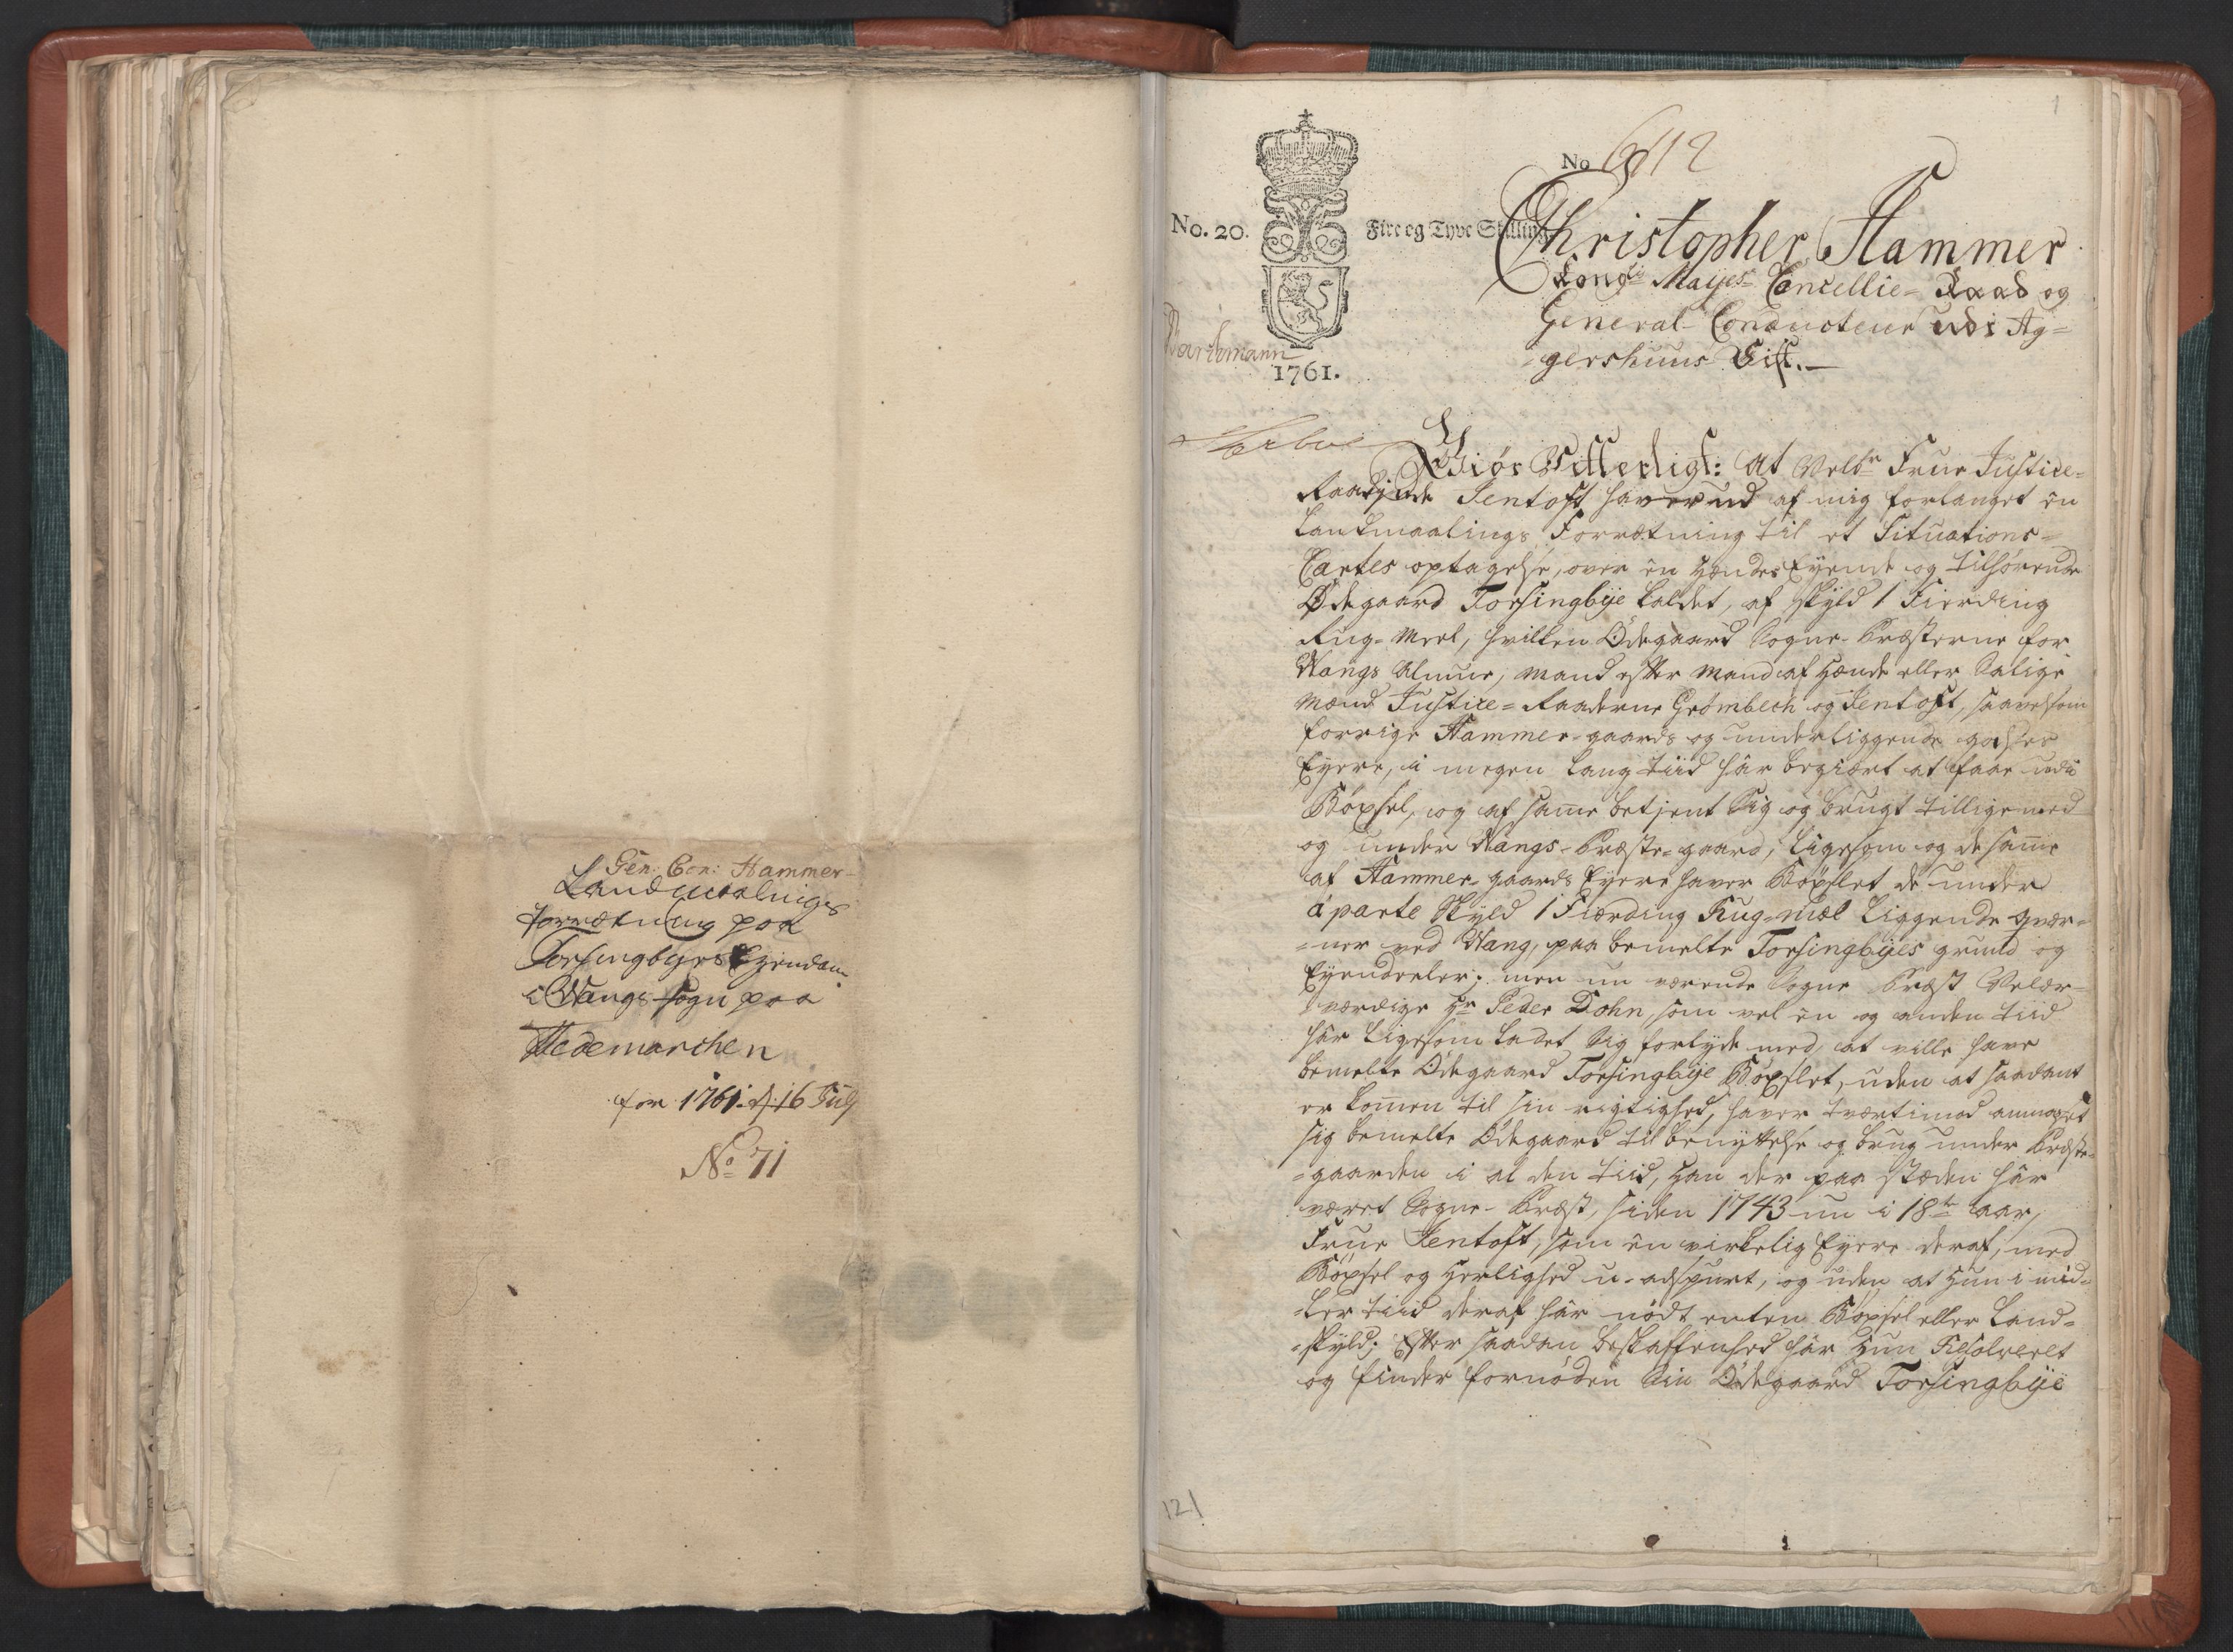 Gen: Con: Hammer
Landmaalings
forretning paa
Torsingbyes Eyendom
i Wangs Sogn paa
Hedemarchen
for 1761. d: 16 July
No 71
1
No 6112
No. 20.
Fire og Tyve Skilling
Christopher Hammer
Kongl. Mayes. Cancellie-Raad og
General-Conducteur udi Ag-
gershuus Stift.
1761.
Giør Vitterligt: At Velbr Frue Justice-
Raadinde Jentoft haver ud af mig forlanget en
Landmaalings Forretning til et Situations-
Cartes optagelse, over en hændes Eyende og tilhørende
Ødegaard Torsingbye kaldet, af skyld 1 Fierding
Rug-Meel, hvilken Ødegaard Sogne-Præsterne for
Wangs Almue, mand efter mand af hænde eller Salige
Mænd Justice-Raaderne Grømbech og Jentoft, saavelsom
forrige Hammer-gaards og underliggende godses
Eyere, i megen lang tiid har begiært at faae udi
Böxsel, og af same betjent sig og brugt tilligemed
og under Wangs-Præste-gaard, ligesom og de same
af Hammer-gaards Eyere haver Böxslet de under
á parte Skyld 1 Fierding Rug-mæl liggende qvær-
ner ved Wang, paa bemelte Torsingbyes grund og
Eyendeeler; men nu værende Sogne Præst Velær-
værdige Hr Peder Dohn, som vel en og anden tiid
har ligesom ladet sig forlyde med, at ville have
bemelte Ødegaard Torsingbye Böxslet, uden at saadant
er komen til sin rigtighed, haver tvertimod anmaßet
sig bemelte Ødegaard til benyttelse og brug under Præste-
gaarden i al den tiid, han der paa stæden har
været Sogne-Præst, siden 1743 nu i 18te aar,
Frue Jentoft, som en virkelig Eyere deraf, med
Böxsel og Herlighed u-adspurt, og uden at hun i mid-
ler tiid deraf har nödt enten Böxsel eller Land-
skyld; Efter saadan beskaffenhed har hun Resolveret
og finder fornöden sin Ødegaard Torsingbye
121